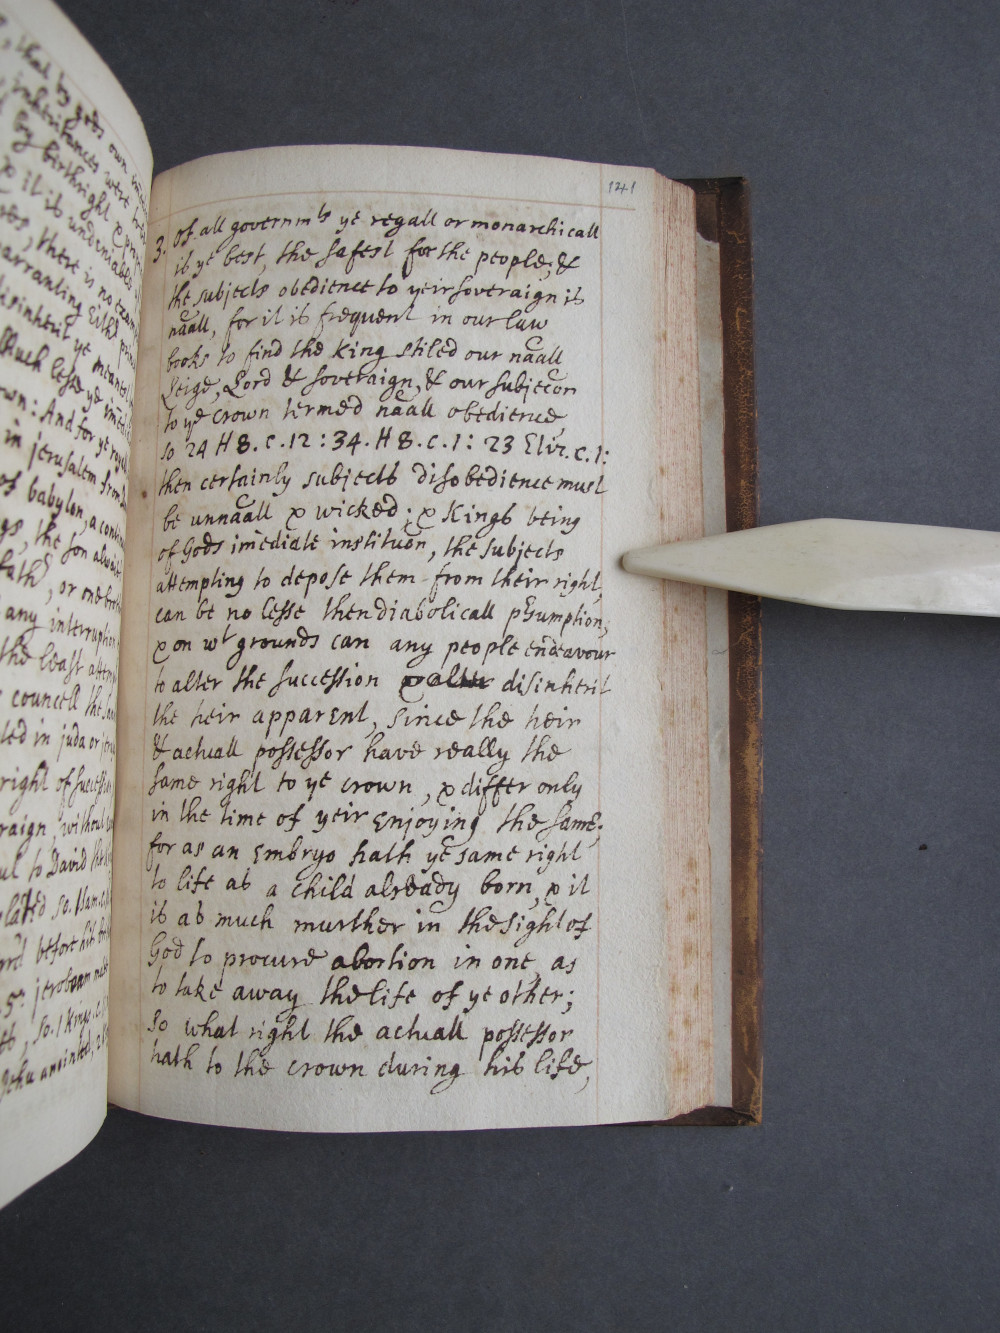 , that by gods own
inheritances were
by birthright &
& it is undeniable
, there is no exam
arranting Eithr
disinherit ye meanest
Much lesse ye imedi
own: And for ye royal
in jerusalem from
of babylon, a contin
gs, the son alwais
fathr, or one broth
any interruption
the least attempt
councell the
led in juda or
right of succession
raign, without
ul to David the
lated so. 1 Sam.
before his
5o: jeroboam made
, so. 1 Kings. c.
Jehu anointed, 2
141
3. Of all governmts ye regall or monarchicall
is ye best, the safest for the people, &
the subjects obedience to yeir soveraign is
naall, for it is frequent in our law
books to find the King stiled our naall
Leige, Lord & soveraign, & our subjecon
to ye crown termed naall obedience,
so 24 H 8. c. 12: 34. H 8. c. 1: 23 Eliz. c. 1:
then certainly subjects disobedience must
be unnaall & wicked; & Kings being
of Gods imediate instituon, the subjects
attempting to depose them from their right,
can be no lesse then diabolicall psumption,
& on wt grounds can any people endeavour
to alter the succession & alter disinherit
the heir apparent, since the heir
& actuall possessor have really the
same right to ye crown, & differ only
in the time of yeir enjoying the same;
for as an Embryo hath ye same right
to life as a child already born, & it
is as much murther in the sight of
God to procure abortion in one, as
to take away the life of ye other;
so what right the actuall possessor
hath to the crown during his life,